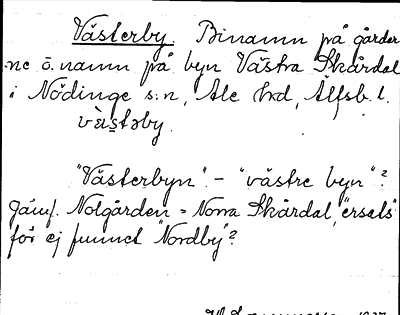 Västerby. Binamn på gårdar
ne o. namn på byn Västra Skårdal
i Nödinge s:n, Ale hrd, Älfsb. l.
vàs̠təby.
"Västerbyn" - "västre byn"?
Jämf. Nolgården = Norra Skårdal, "ersatt"
för ej funnet "Nordby"?